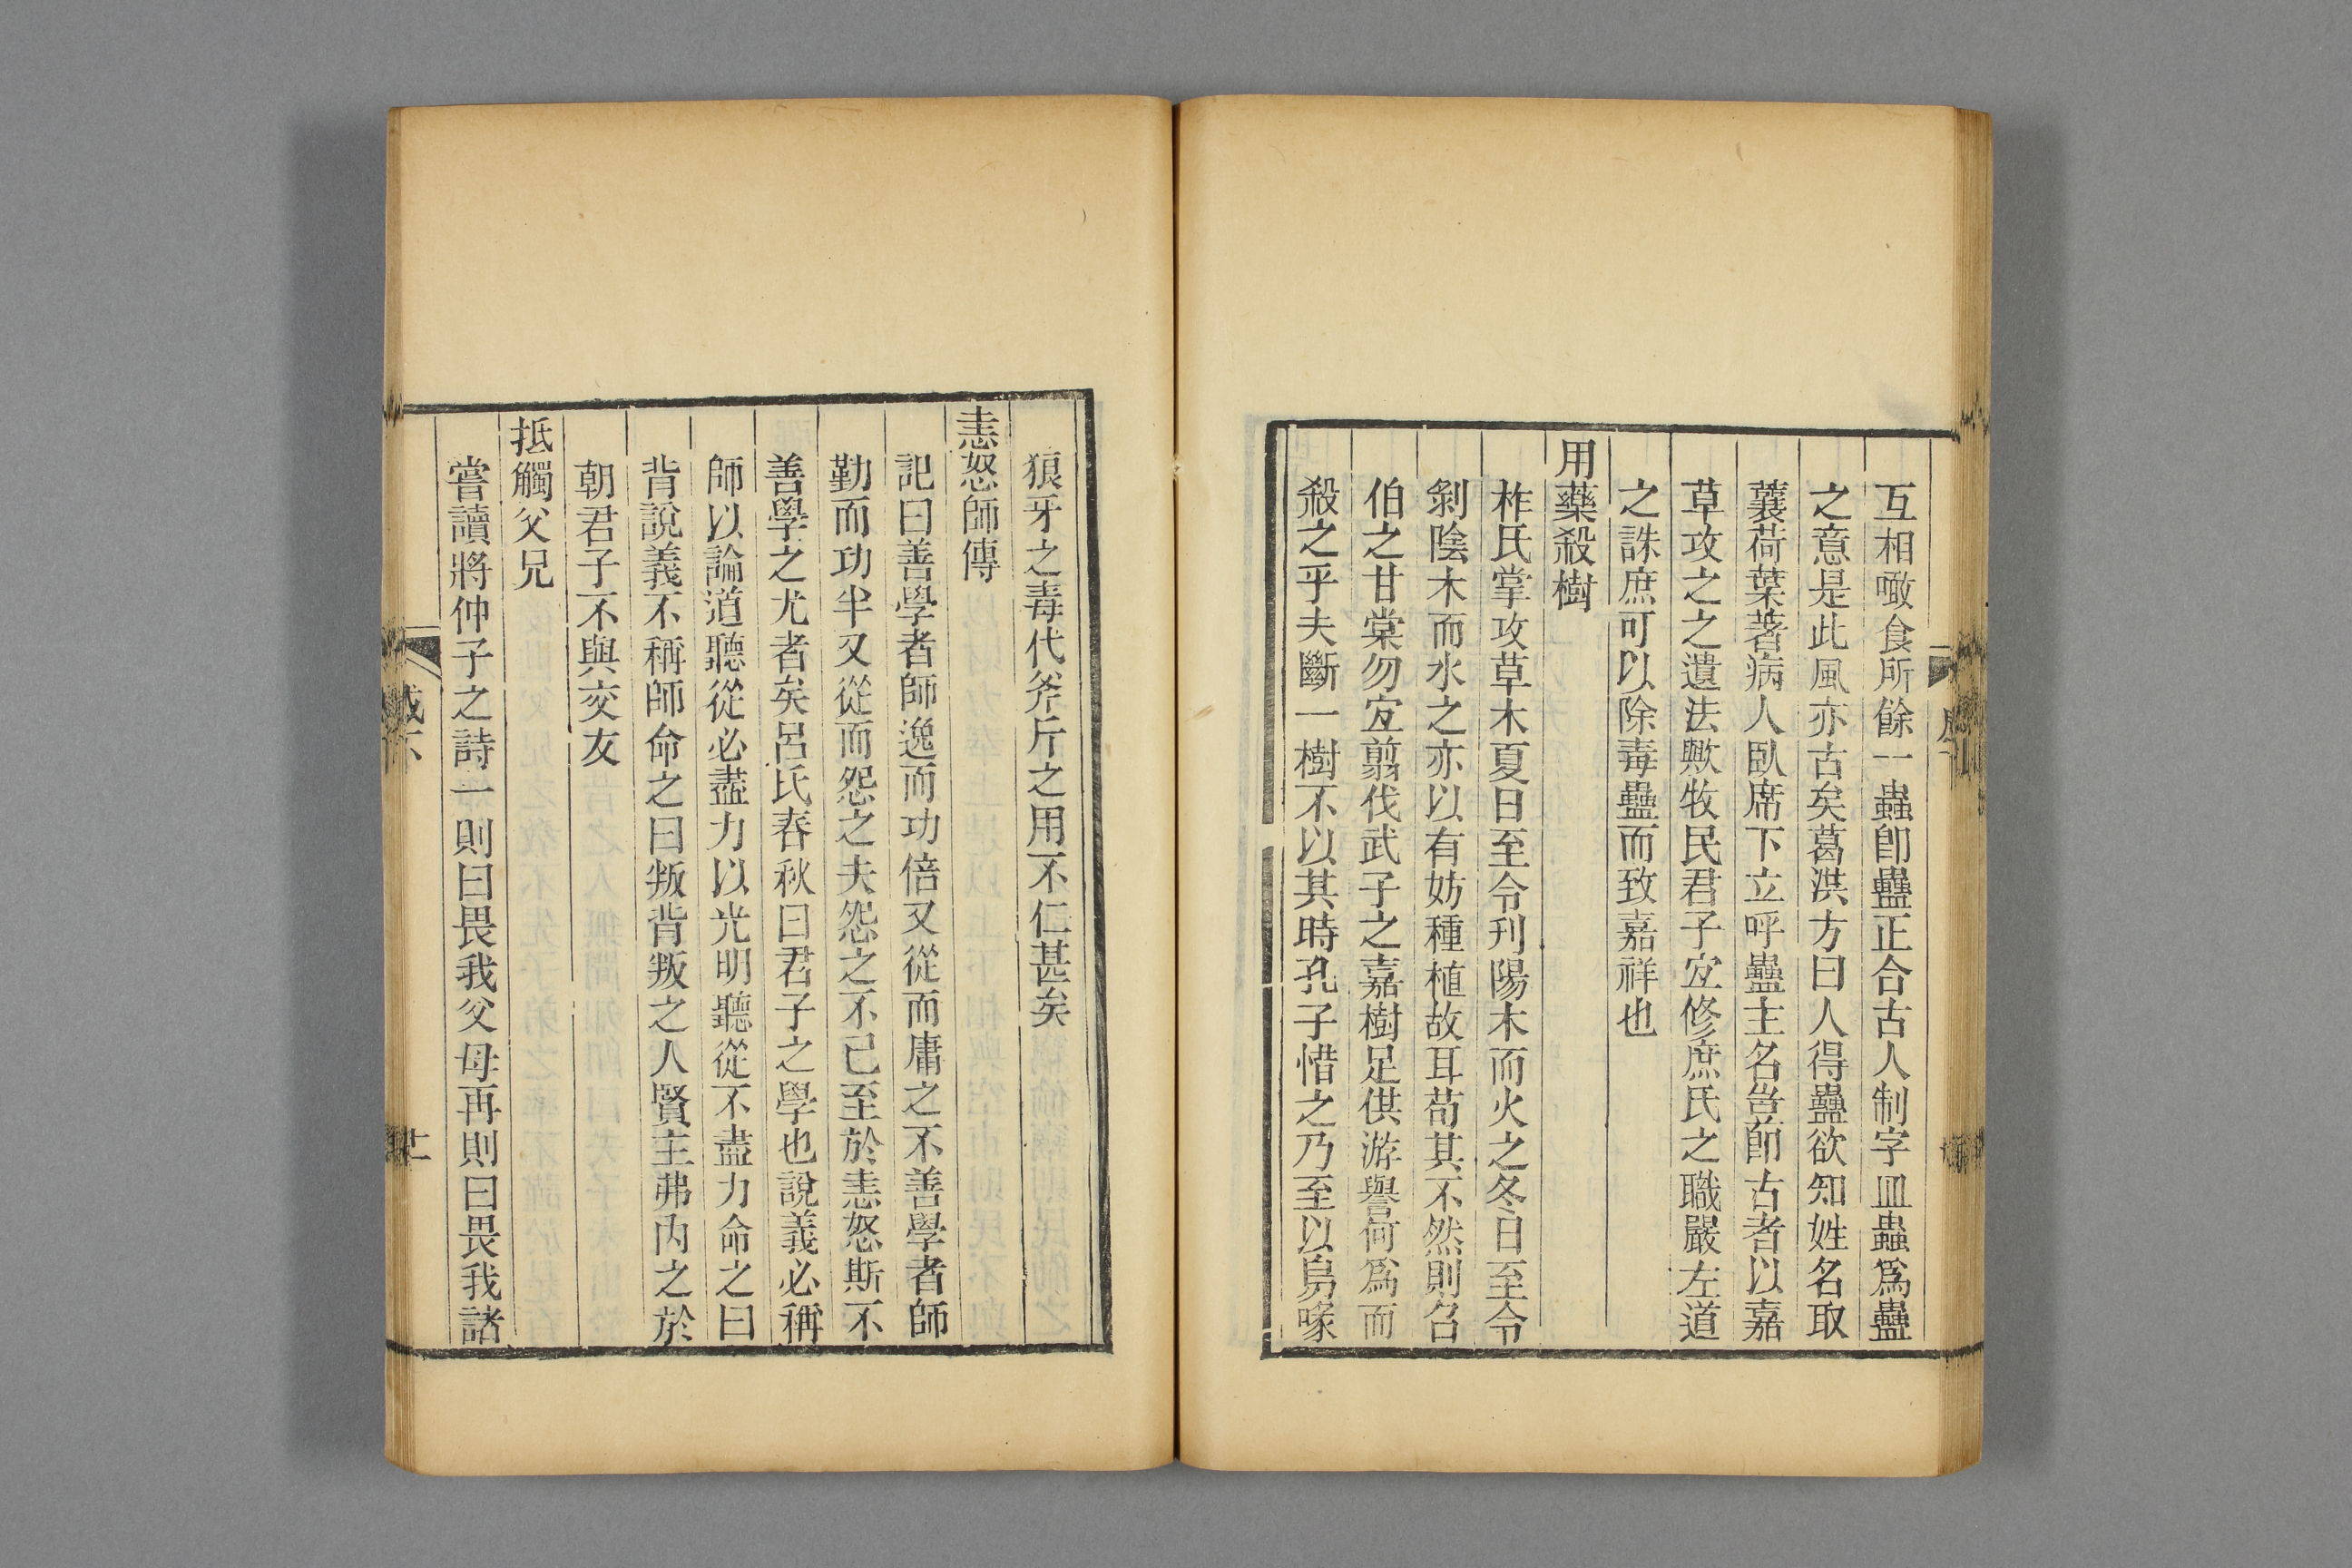 互相噉食所餘一蟲卽蠱正合古人制字皿蟲爲蠱
之意是此風亦古矣葛洪方曰人得蠱欲知姓名取
蘘荷葉著病人臥席下立呼蠱主名豈卽古者以嘉
草攻之之遺法歟牧民君子宜修庶氏之職嚴左道
之誅庶可以除毒蠱而致嘉祥也
用藥殺樹
柞氏掌攻草木夏日至令刋陽木而火之冬日至令
剝陰木而水之亦以有妨種植故耳苟其不然則召
伯之甘棠勿宜翦伐武子之嘉樹足供游譽何爲而
殺之乎夫斷一樹不以其時孔子惜之乃至以烏喙
狼牙之毒代斧斤之用不仁甚矣
恚怒師傳
記曰善學者師逸而功倍又從而庸之不善學者師
勤而功半又從而怨之夫怨之不已至於恚怒斯不
善學之尤者矣呂氏春秋曰君子之學也說義必稱
師以論道聽從必盡力以光明聽從不盡力命之曰
背說義不稱師命之曰叛背叛之人賢主弗內之於
朝君子不與交友
抵觸父兄
嘗讀將仲子之詩一則曰畏我父母再則曰畏我諸